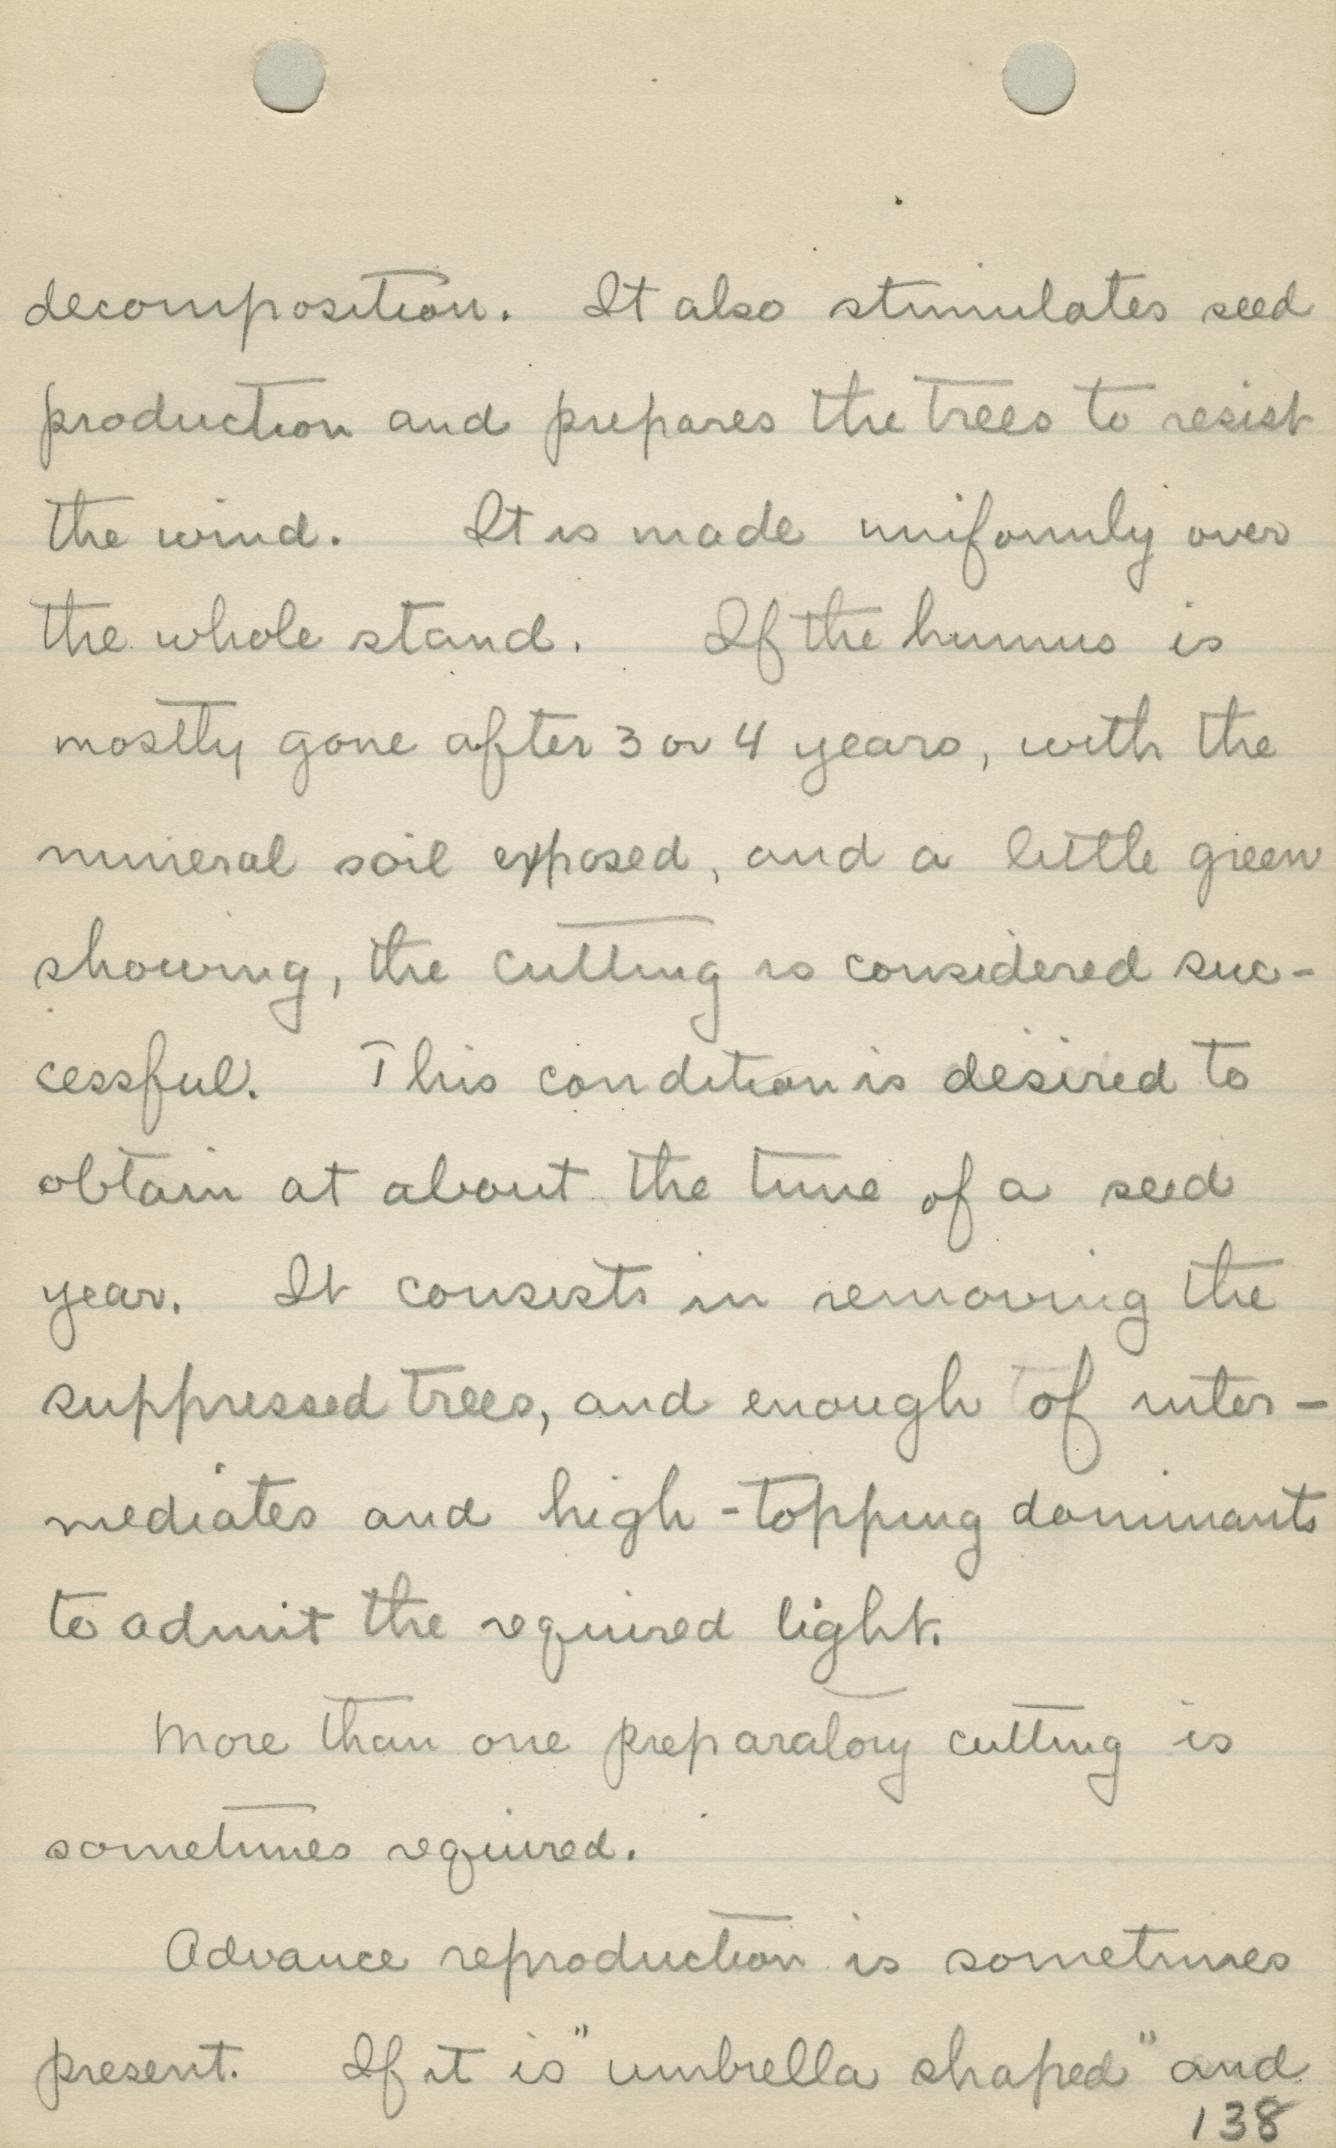 decomposition. It also stimulates seed
production and prepares the trees to resist
the wind. It is made uniformly over
the whole stand. If the humus is
mostly gone after 3 or 4 years, with the
mineral soil exposed, and a little green
showing, the cutting is considered suc-
cessful. This condition is desired to
obtain at about the time of a seed
year. It consists in removing the
suppressed trees, and enough of inter-
mediates and high-topping dominants
to admit the required light.
More than one preparatory cutting is
sometimes required.
Advance reproduction is sometimes
present. If it is "umbrella shaped" and
138